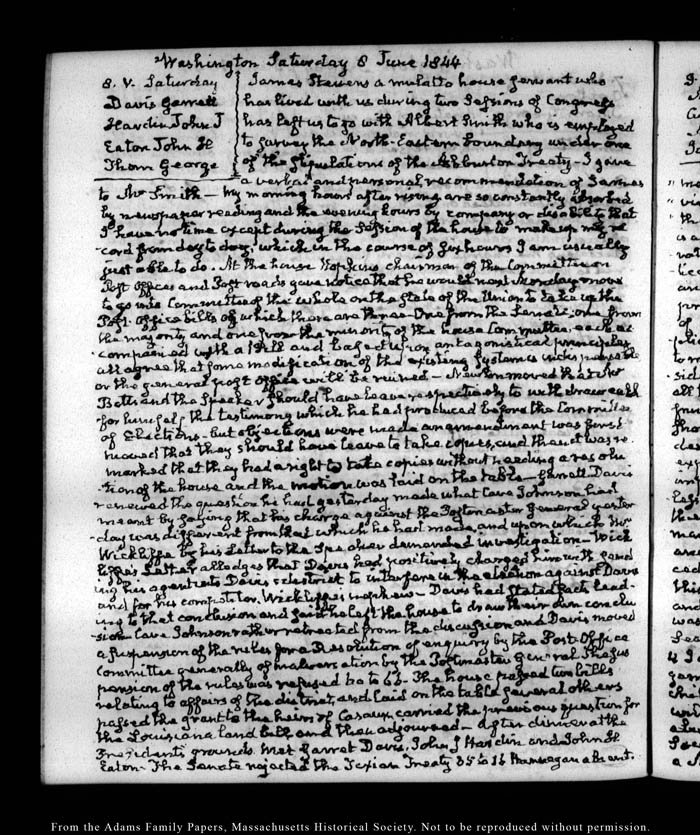 Washington Saturday 8 June 1844
8. V. Saturday
Davis Garrett
Hardin John J
Eaton John H
Thom George
James Stevens a mulatto house servant who
has lived with us during two Sessions of Congress
has left us to go with Albert Smith who is employed
to survey the North-Eastern boundary under one
of the stipulations of the Ashburton Treaty - I gave
a verbal and personal recommendation of James
to Mr Smith - My morning hours after rising are so constantly absorbed
by newspaper reading and the evening hours by company or disability that
I have no time except during the Session of the house to make up my re
cord from day to day, which in the course of six hours I am usually
just able to do. At the house Hopkins chairman of the Committee on
Post Offices and Post roads gave notice that he would next Monday move
to go into Committee of the whole on the state of the Union to take up the
Post-Office bills of which there are three - One from the Senate; one from
the majority and one from the minority of the house Committee, each ac
companied with a Bill and based upon antagonistical principles
all agree that some modification of the existing System is indispensable
or the general post office will be ruined - Newton moved that Mr
Botts and the Speaker should have leave respectively to withdraw each
for himself the testimony which he had produced before the Committee
of Elections - but objections were made an amendment was
moved that they should have leave to take copies, and then it was re
marked that they had a right to take copies without needing a resolu
tion of the house and the motion was laid on the table - Garrett Davis
renewed the question he had yesterday made what Cave Johnson had
meant by saying that his charge against the Postmaster General yester
day was different from that which he had made, and upon which Mr
Wickliffe by his Letter to the Speaker demanded investigation - Wick
liffe's Letter alledges that Davis had positively charged him with send
ing his agent into Davis's district to interfere in the election against Davis
and for his competitor, Wickliffe's nephew - Davis had stated facts lead
ing to that conclusion and said he left the house to draw their own conclu
sion Cave Johnson rather retreated from the discussion and Davis moved
a suspension of the rules for a Resolution of enquiry by the Post-Office
Committee generally of malversation by the Postmaster General. The sus
pension of the rules was refused 60 to 63. The house passed two bills
relating to affairs of this district, and laid on the table several others
passed the grant to the heirs of Casaux, carried the previous question for
the Louisiana land bill and then adjourned - After dinner at the
Presidents grounds met Garret Davis, John J Hardin and John H
Eaton. The Senate rejected the Texian Treaty 35 to 16 Hannegan absent.
From the Adams Family Papers, Massachusetts Historical Society. Not to be reproduced without permission.